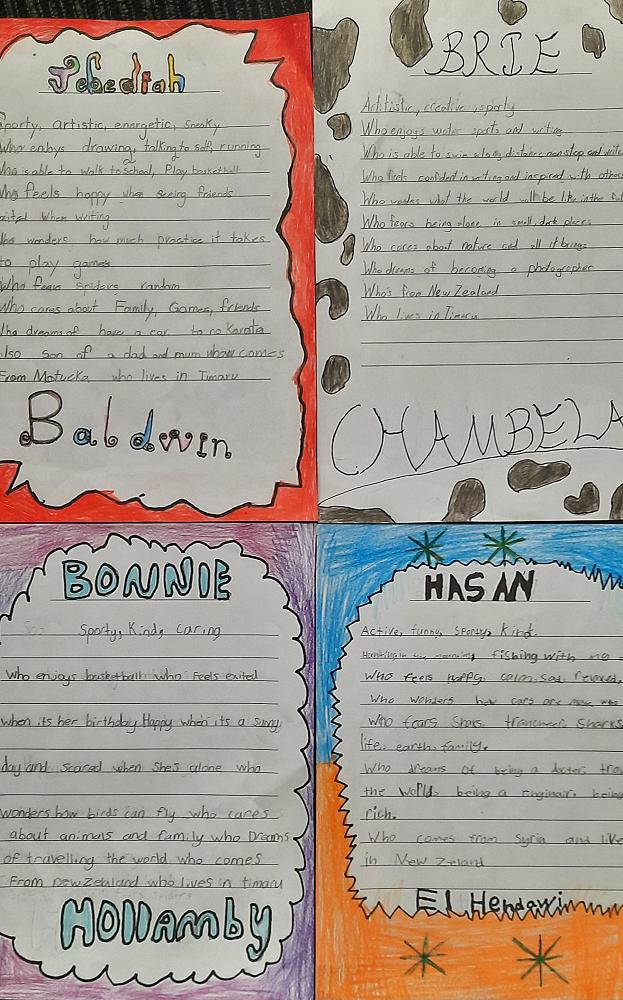 Jebediah
Sporty, artistic, energetic, Sneaky
Who enhys drawing, talking to self, running
Who is able to walk to school, Play basketball
Who feels happy when seeing friends
exited When writing
Who wonders how much practice it takes
to play games
Who fears spiders random
Who cares about Family, Games, friends
Who dreams of have a car to no Karata
also son of a dad and mum whow comes
From Motueka who lives in Timaru
Baldwin
BRIE
Artitistic, creative, sporty
Who enjoys water sports and writing
Who is able to swim a long distance non stop and write
Who feels confident in writing and inspired with others
Who wondes what the world will be like in the fut
Who fears being alone in small, dark places
Who cares about nature and all it brings
Who dreams of becoming a photographer
Who's from New Zealand
Who lives in Timaru
CHAMBELA
BONNIE
Sporty, Kind, Caring
Who enjoys basketball who Feels exited
when its her birthday Happy when its a sunny
day and scared when She's alone who
wonders how birds can fly who cares
about animals and family who Dreams
of travelling the world who comes
From newzealand who lives in timaru
HOllAmby
HASAN
Active, funny, Sporty, Kind.
fishing with me
Who feels happy, calm, sad, relaxed,
Who wonders how cars are
Who fears Sharks
life, earth, family.
Who dreams of being a doctor, trav
the world, being a Enginair, being
rich.
Who comes from Syria and live
in New Zeland
El Hendawin